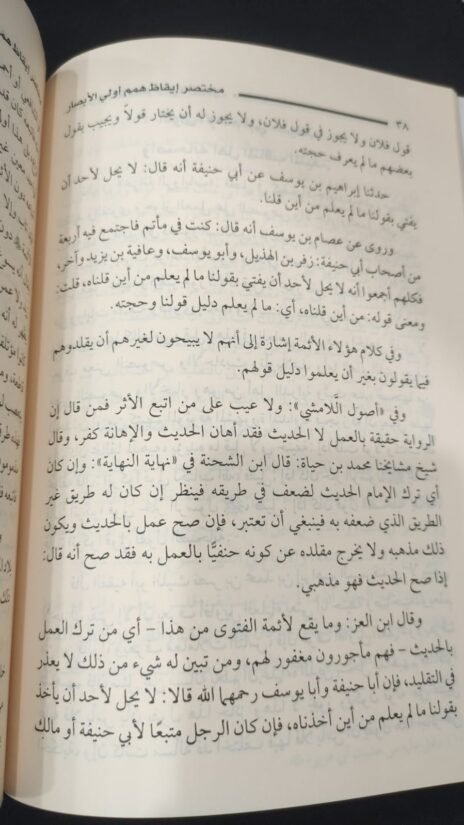 ٣٨ مختصر إيقاظ همم أولي الأبصار
قول فلان ولا يجوز في قول فلان، ولا يجوز له أن يختار قولاً ويجيب بقول
بعضهم ما لم يعرف حجته.
حدثنا إبراهيم بن يوسف عن أبي حنيفة أنه قال: لا يحل لأحد أن
يفتي بقولنا ما لم يعلم من أين قلنا.
وروى عن عصام بن يوسف أنه قال: كنت في مأتم فاجتمع فيه أربعة
من أصحاب أبي حنيفة: زفر بن الهذيل، وأبو يوسف، وعافية بن يزيد وآخر،
فكلهم أجمعوا أنه لا يحل لأحد أن يفتي بقولنا ما لم يعلم من أين قلناه، قلت:
ومعنى قوله: من أين قلناه، أي: ما لم يعلم دليل قولنا وحجته.
وفي كلام هؤلاء الأئمة إشارة إلى أنهم لا يبيحون لغيرهم أن يقلدوهم
فيما يقولون بغير أن يعلموا دليل قولهم.
وفي «أصول اللَّامشي»: ولا عيب على من اتبع الأثر فمن قال إن
الرواية حقيقة بالعمل لا الحديث فقد أهان الحديث والإهانة كفر، وقال
شيخ مشايخنا محمد بن حياة: قال ابن الشحنة في «نهاية النهاية»: وإن كان
أي ترك الإمام الحديث لضعف في طريقه فينظر إن كان له طريق غير
الطريق الذي ضعفه به فينبغي أن تعتبر، فإن صح عمل بالحديث ويكون
ذلك مذهبه ولا يخرج مقلده عن كونه حنفيًّا بالعمل به فقد صح أنه قال:
إذا صح الحديث فهو مذهبي.
وقال ابن العز: وما يقع لأئمة الفتوى من هذا – أي من ترك العمل
بالحديث – فهم مأجورون مغفور لهم، ومن تبين له شيء من ذلك لا يعذر
في التقليد، فإن أبا حنيفة وأبا يوسف رحمهما الله قالا: لا يحل لأحد أن يأخذ
بقولنا ما لم يعلم من أين أخذناه، فإن كان الرجل متبعًا لأبي حنيفة أو مالك